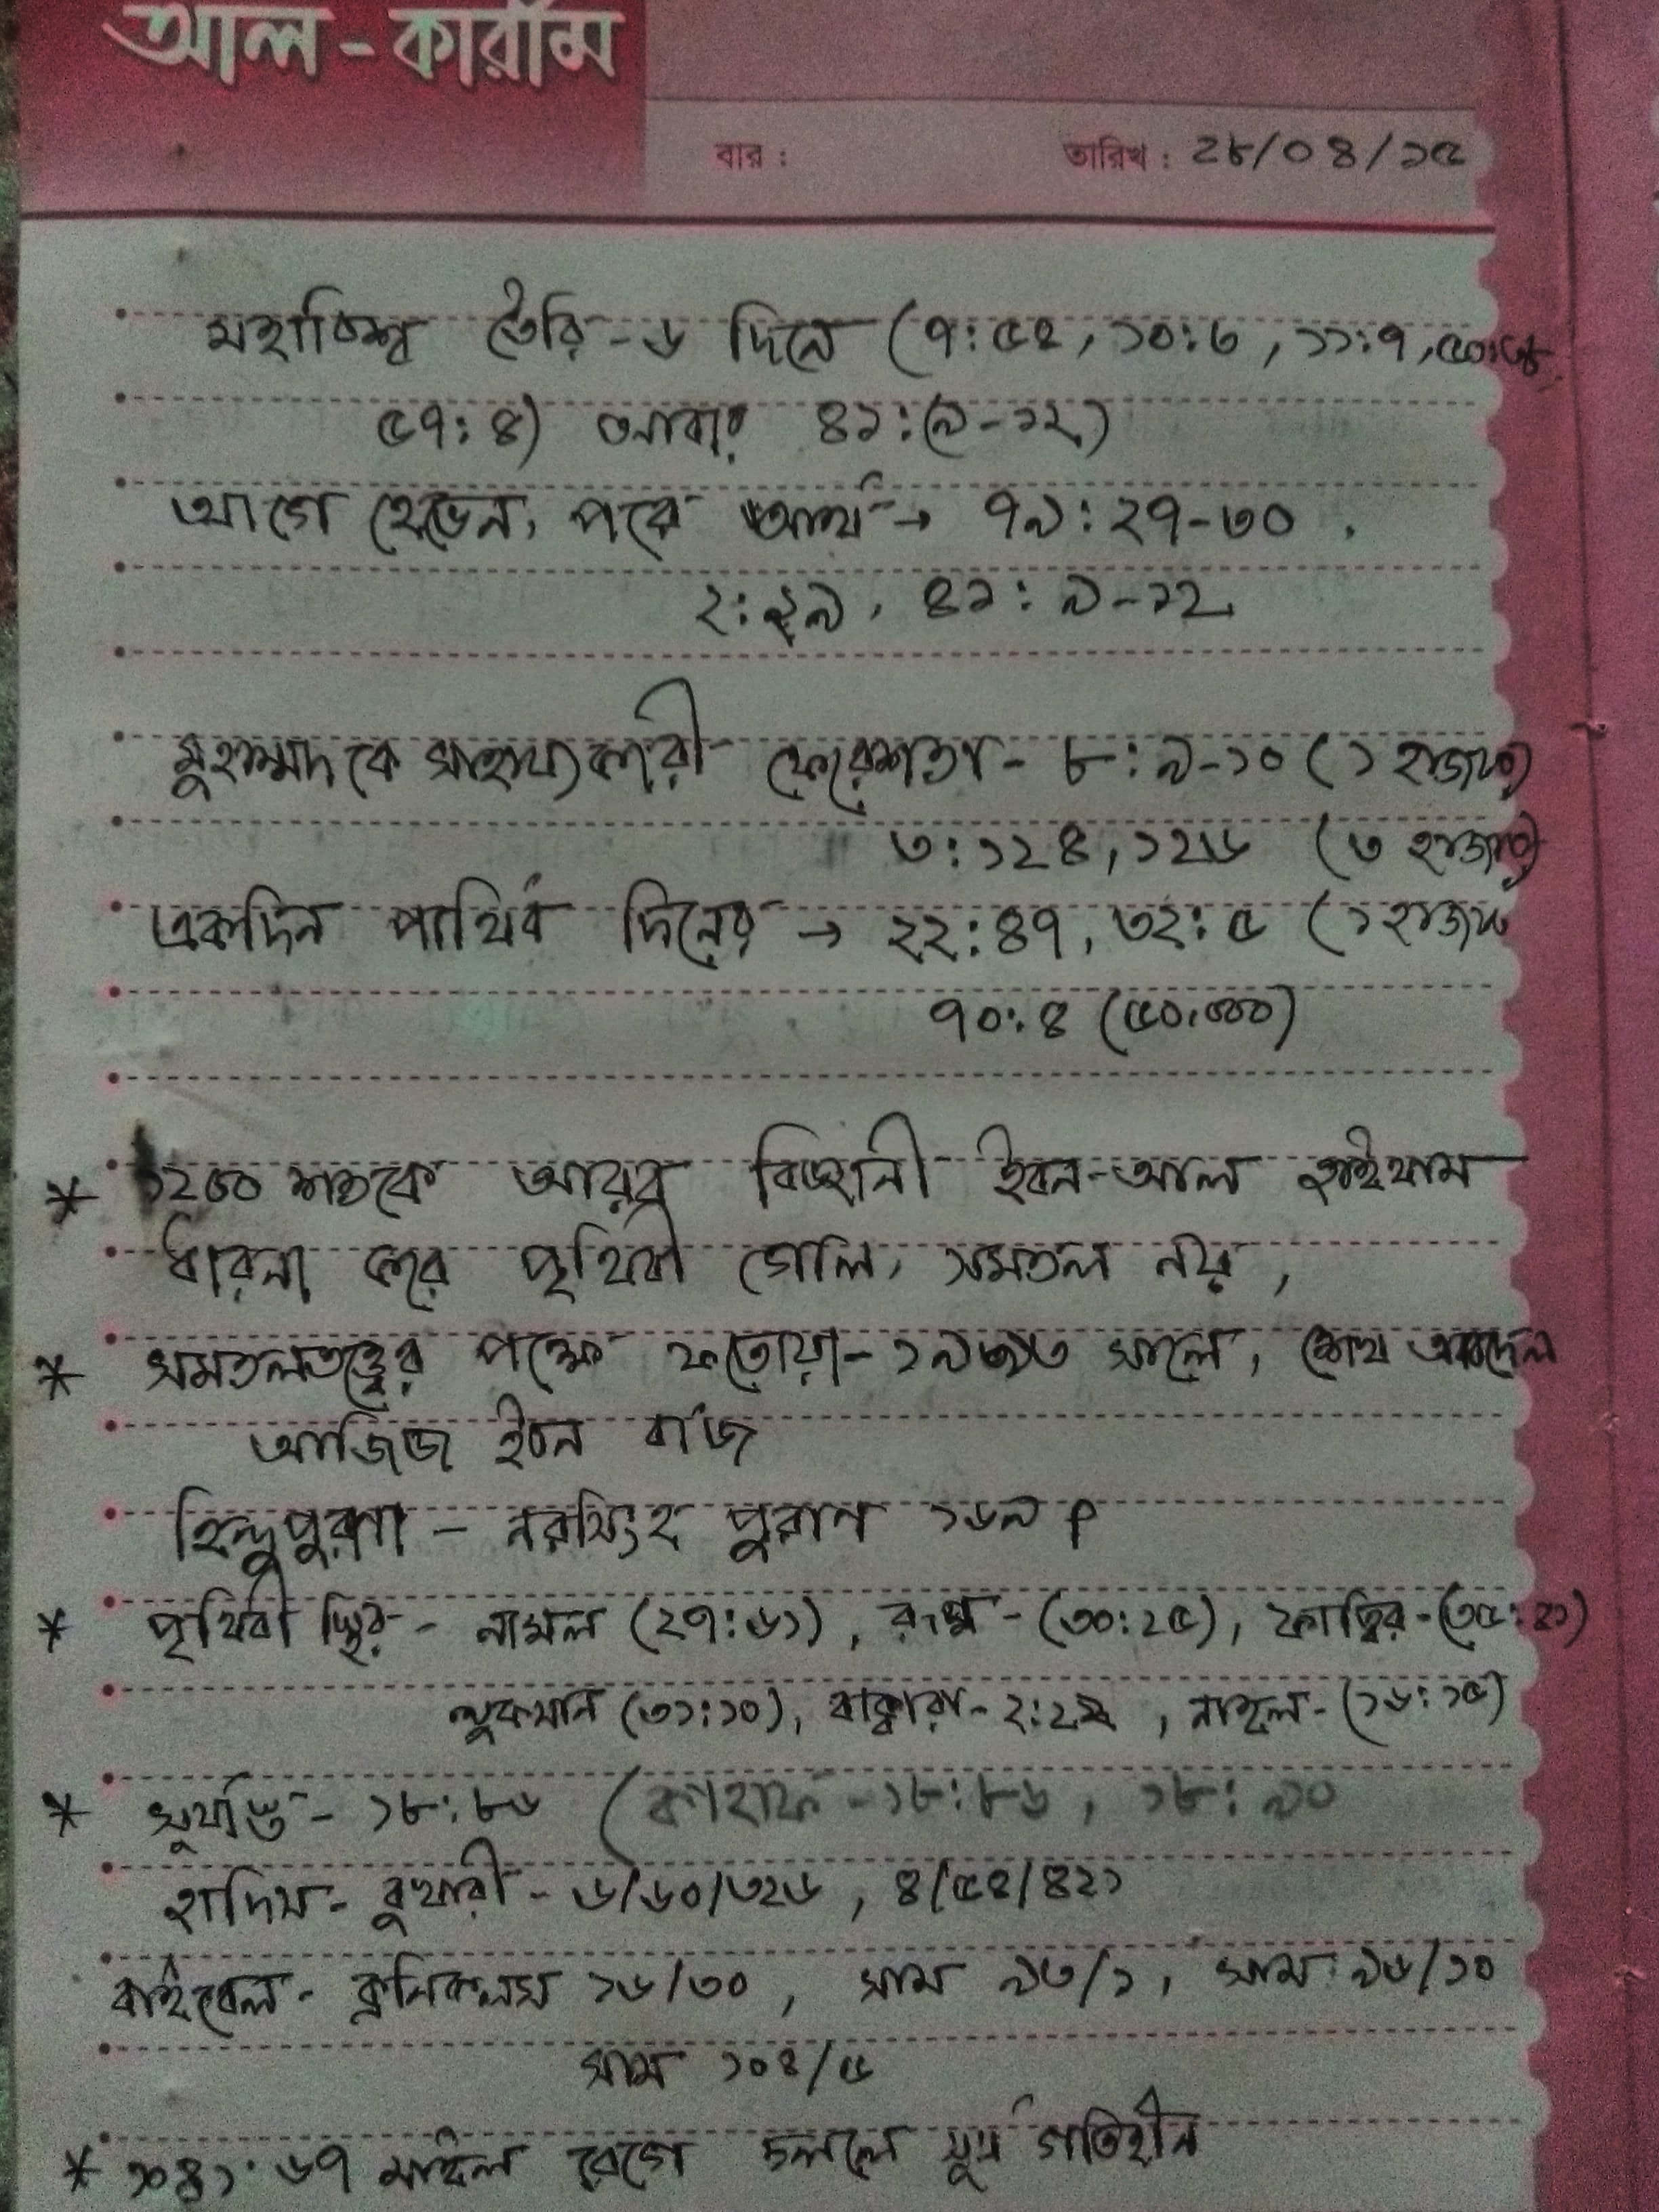 আল-কারীম
বার : তারিখ : ২৮/০৪/১৫
মহাবিশ্ব তৈরি - ৬ দিনে (৭:৫৪, ১০:৩, ১১:৭,
৫৭:৪) আবার ৪১:(৯-১২)
আগে হেভেন, পরে আর্থ → ৭৯:২৭-৩০,
২:২৯, ৪১:৯-১২
মুহাম্মদকে সাহায্যকারী ফেরেশতা - ৮:৯-১০ (১ হাজার)
৩:১২৪, ১২৬ (৩ হাজার)
একদিন পার্থিব দিনের → ২২:৪৭, ৩২:৫ (১ হাজার
৭০:৪ (৫০,০০০)
* শতকে আরব বিজ্ঞানী ইবন-আল হাইথাম
ধারনা করে পৃথিবী গোল, সমতল নয়,
* সমতলতত্ত্বের পক্ষে ফতোয়া - সালে, শেখ আবদেল
আজিজ ইবন বাজ
হিন্দুপুরাণ - নরসিংহ পুরান ১৬৯ P
* পৃথিবী স্থির - নামল (২৭:৬১), রুম - (৩০:২৫), ফাত্বির - (৩৫:৪১)
লুকমান (৩১:১০), বাক্বারা - ২:২২, নাহল - (১৬:১৫)
* সূর্যাস্ত - ১৮:৮৬ (কাহাফ - ১৮:৮৬, ১৮:৯০
হাদিস - বুখারী - ৬/৬০/৩২৬, ৪/৫৪/৪২১
বাইবেল - ক্রনিকলস ১৬/৩০, সাম ৯৩/১, সাম ৯৬/১০
সাম ১০৪/৫
* ১০৪১.৬৭ মাইল বেগে চললে সূর্য গতিহীন